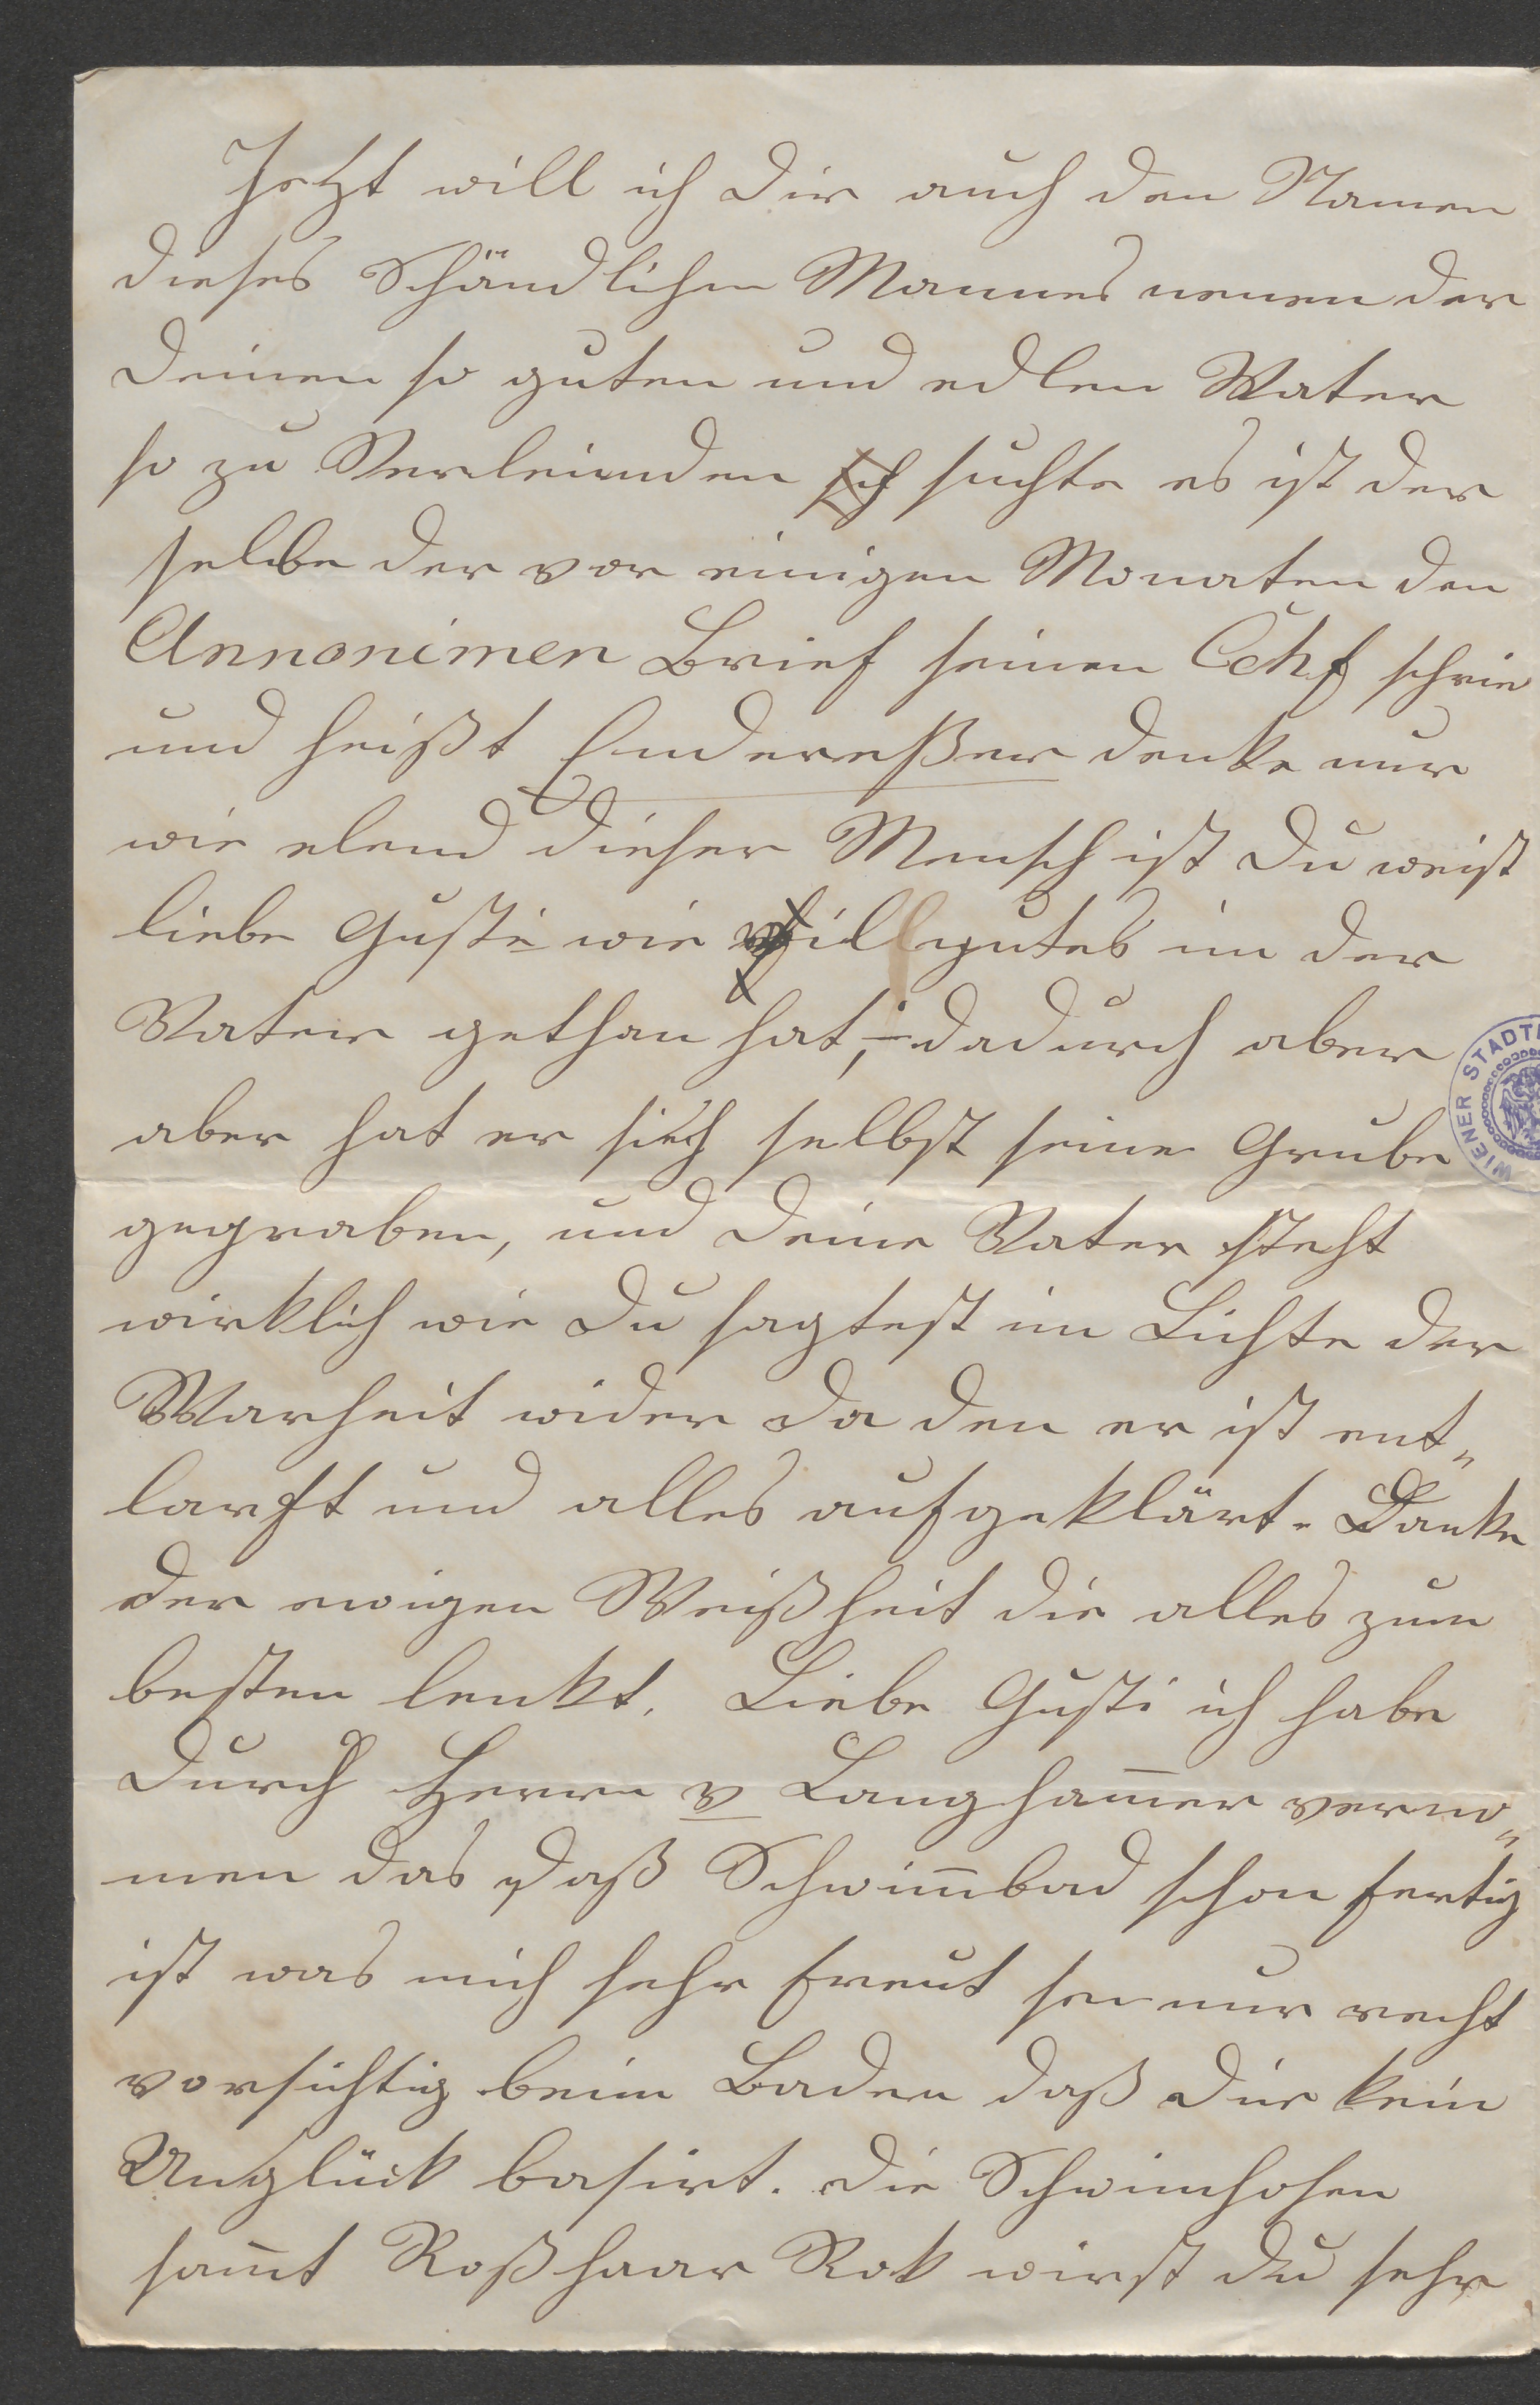 Jetzt will ich Dir auch den Namen
dieses Schändlichen Mannes nenen der
Deinen so guten und edlen Vater
so zu Verleimden suchte es ist der
selbe der vor einigen Monaten den
Annonimen Brief seinen Cehf schrie
und heißt denke nur
wie elend dieser Mensch ist Du weist
liebe Gusti wie fill gutes im der
Vater gethan hat, dadurch aber
aber hat er sich selbst seine Grube
gegraben, und Deine Vater steht
wirklich wie Du sagtest im Lichte der
Warheit wider da den er ist ent„
larft und alles aufgeklärt. Danke
der ewigen Weißheit die alles zum
besten lenkt. Liebe Gusti ich habe
durch Herrn v Langham̅er verno„
men das daß Schwim̅bad schon fertig
ist was mich sehr freut sei nur recht
vorsichtig beim Baden daß Dir kein
Unglück basirt. Die Schwimhosen
sam̅t Roßhaar Rok wirst Du sehr
WIENER STADT